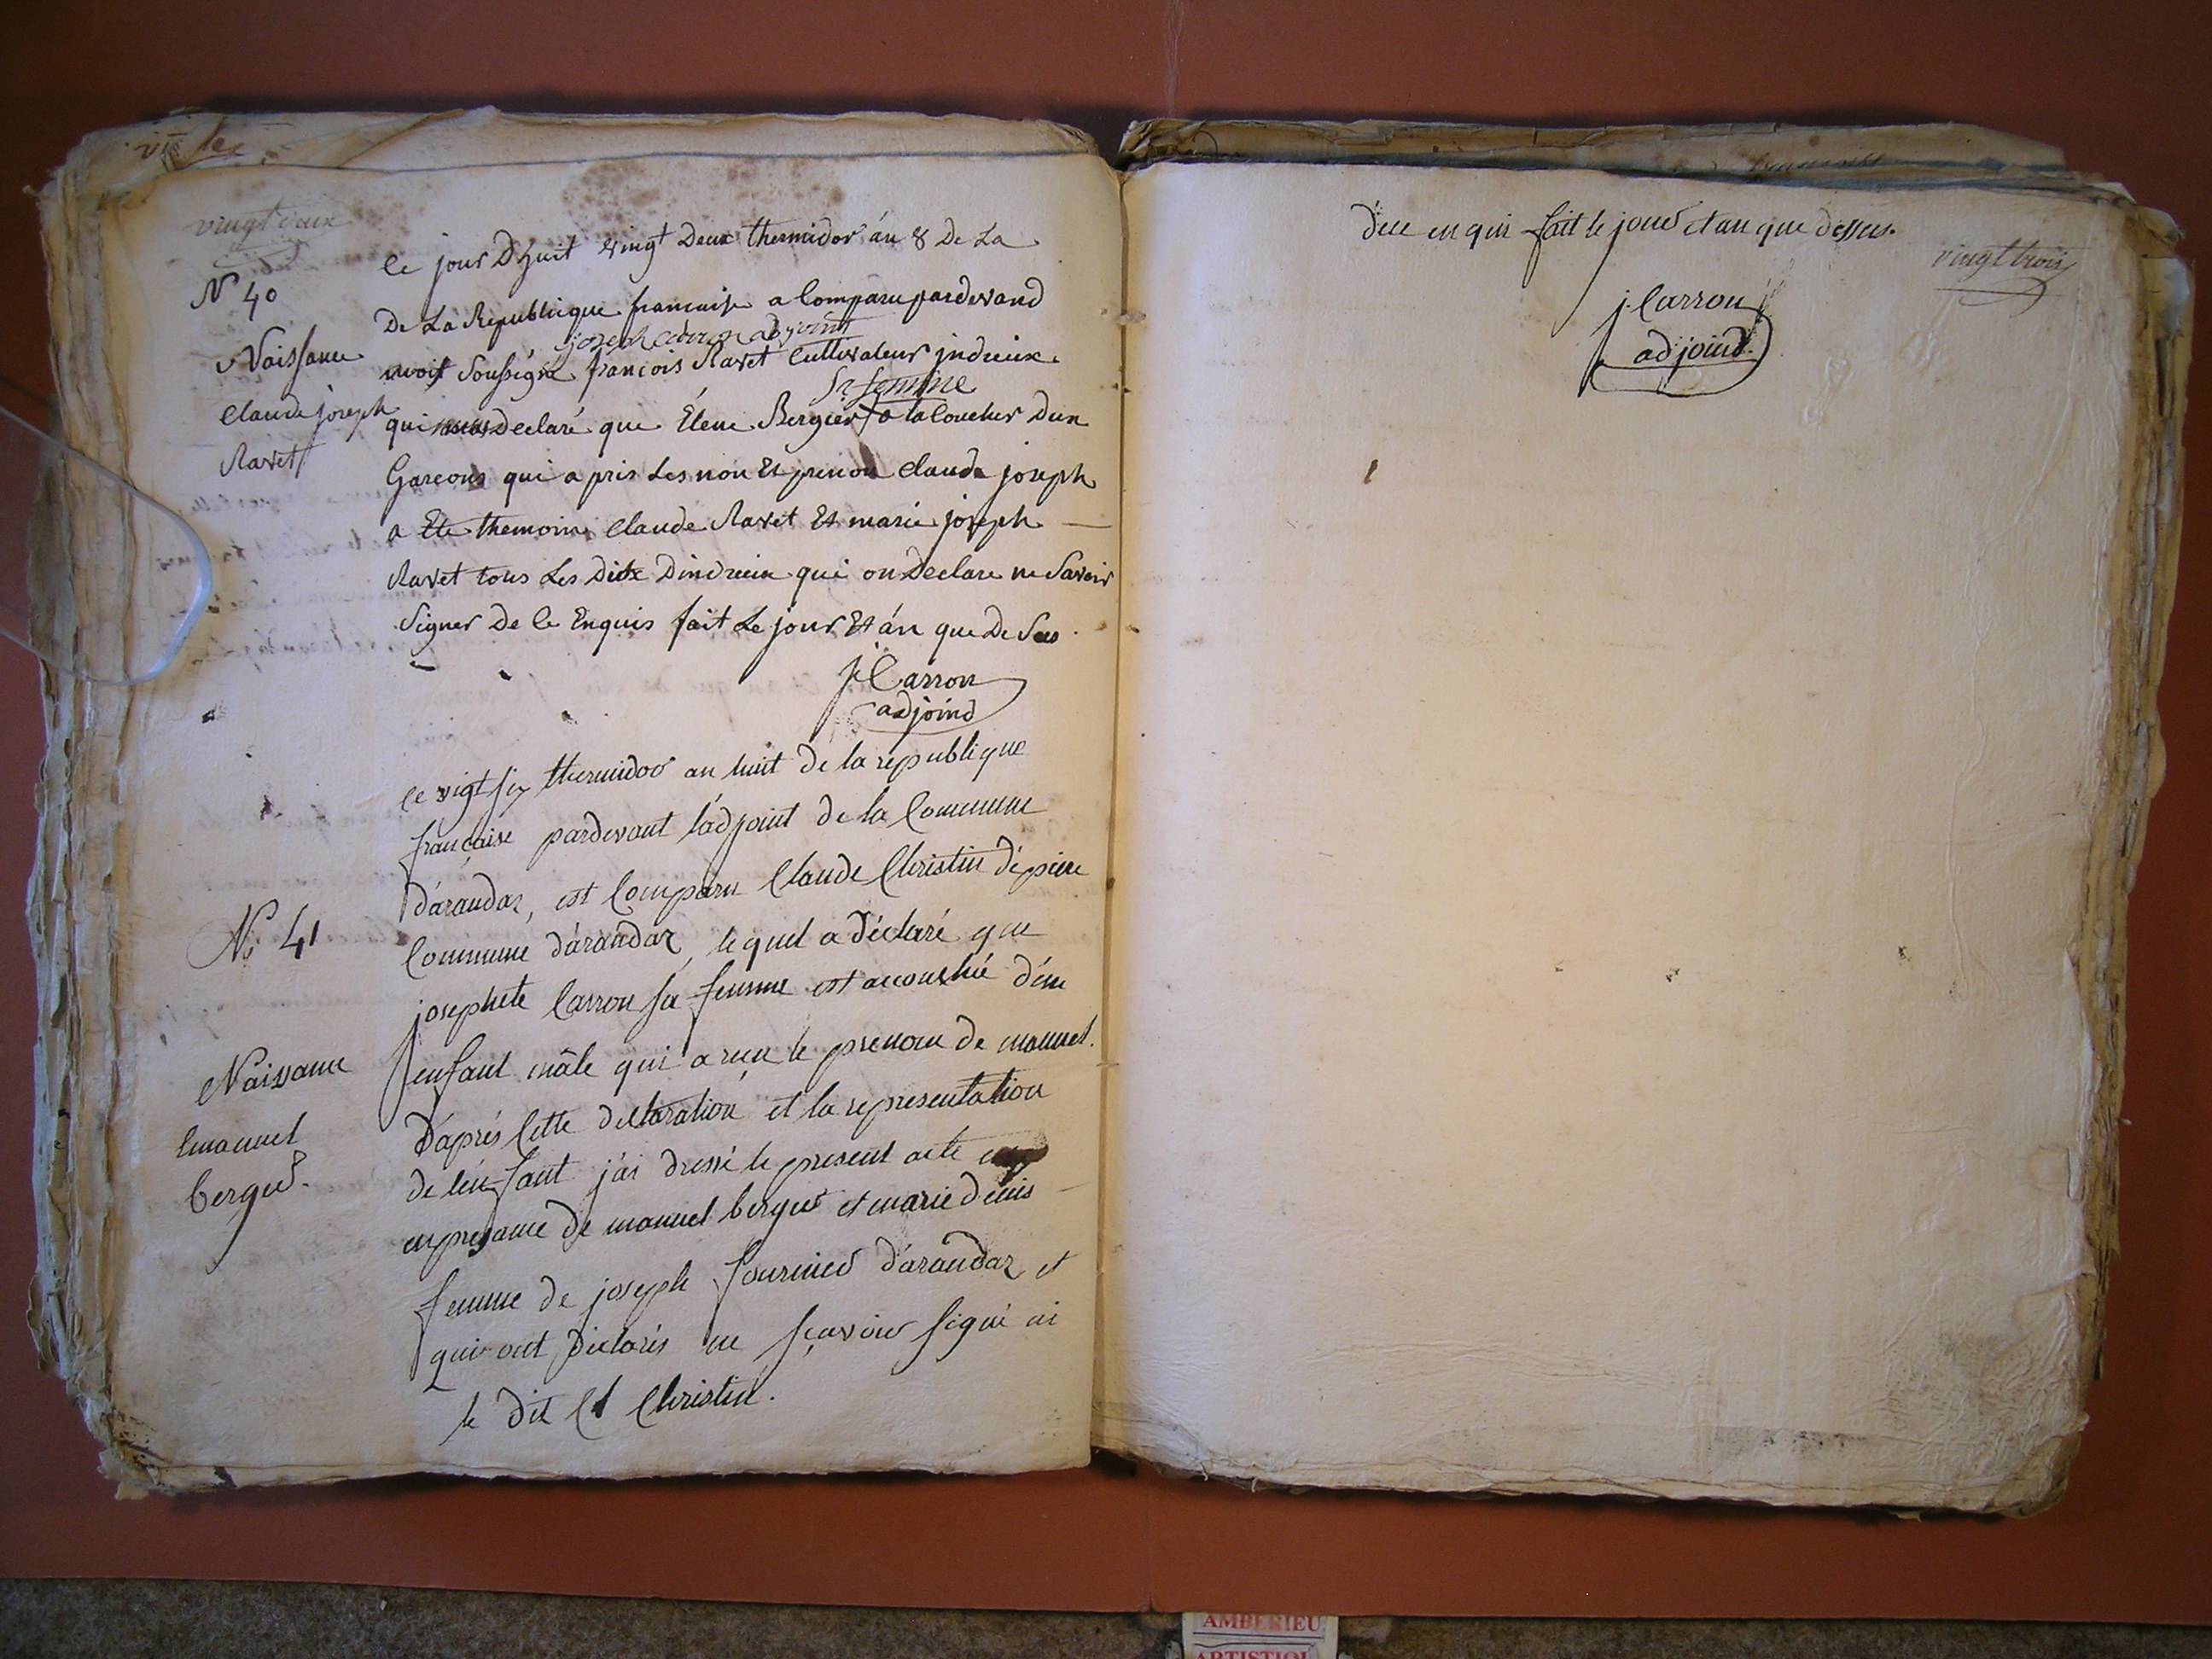 vingt deux
N 40
Naissance
claude joseph
Ravet
ce jour Dhuit vingt Deux thermidor án 8 De La
De La Republicque francaise a Comparu pardevand
joseph carron adjoint
moij Soussigné francois Ravet Cultivateur jndrieux
Sa femme
qui Declaré que Élene Bergier a la Coucher Dun
Garcons qui a pris Les non Et prenon claude joseph
a Ete themoins Claude Ravet Et marie joseph
Ravet tous Les Ditx Dindrieux qui on Declare ne Savoir
Signer De Ce Enquis fait Le jour Et án que De Sus
J Carron
adjoind
N° 41
Naissance
Emanuel
berger
ce vigt six thermidor an huit de la république
française pardevant l'adjoint de la Commune
d'arandaz, est Comparu Claude Christin de piere
Commune d'arandaz, lequel a déclaré que
josephete Carron sa femme est accouchée d'un
enfant mâle qui a reçu le prenom de manuel.
D'aprés Cette déclaration et la representation
de l'enfant j'ai dressé le present acte
en presance de manuel berger et marie denis
femme de joseph fournier d'arandaz et
qui ont déclarés ne sçavoir signé ni
le dit Cl Christin.
d'eu en qui fait le jour et an que dessus.
vingt trois
j. Carron
adjoind.
AMBERIEU